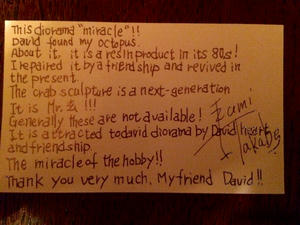 This diorama "miracle"!!
David found my octopus.
About it. it is a resin product in its 80s!
I repaired it by a friendship and revived in
the present.
The crab sculpture is a next-generation
It is Mr. !!!
Generally these are not available!
It is attracted todavid diorama by David
and friendship.
The miracle of the hobby!!
Thank you very much, My friend David!!
Izumi
Takabe